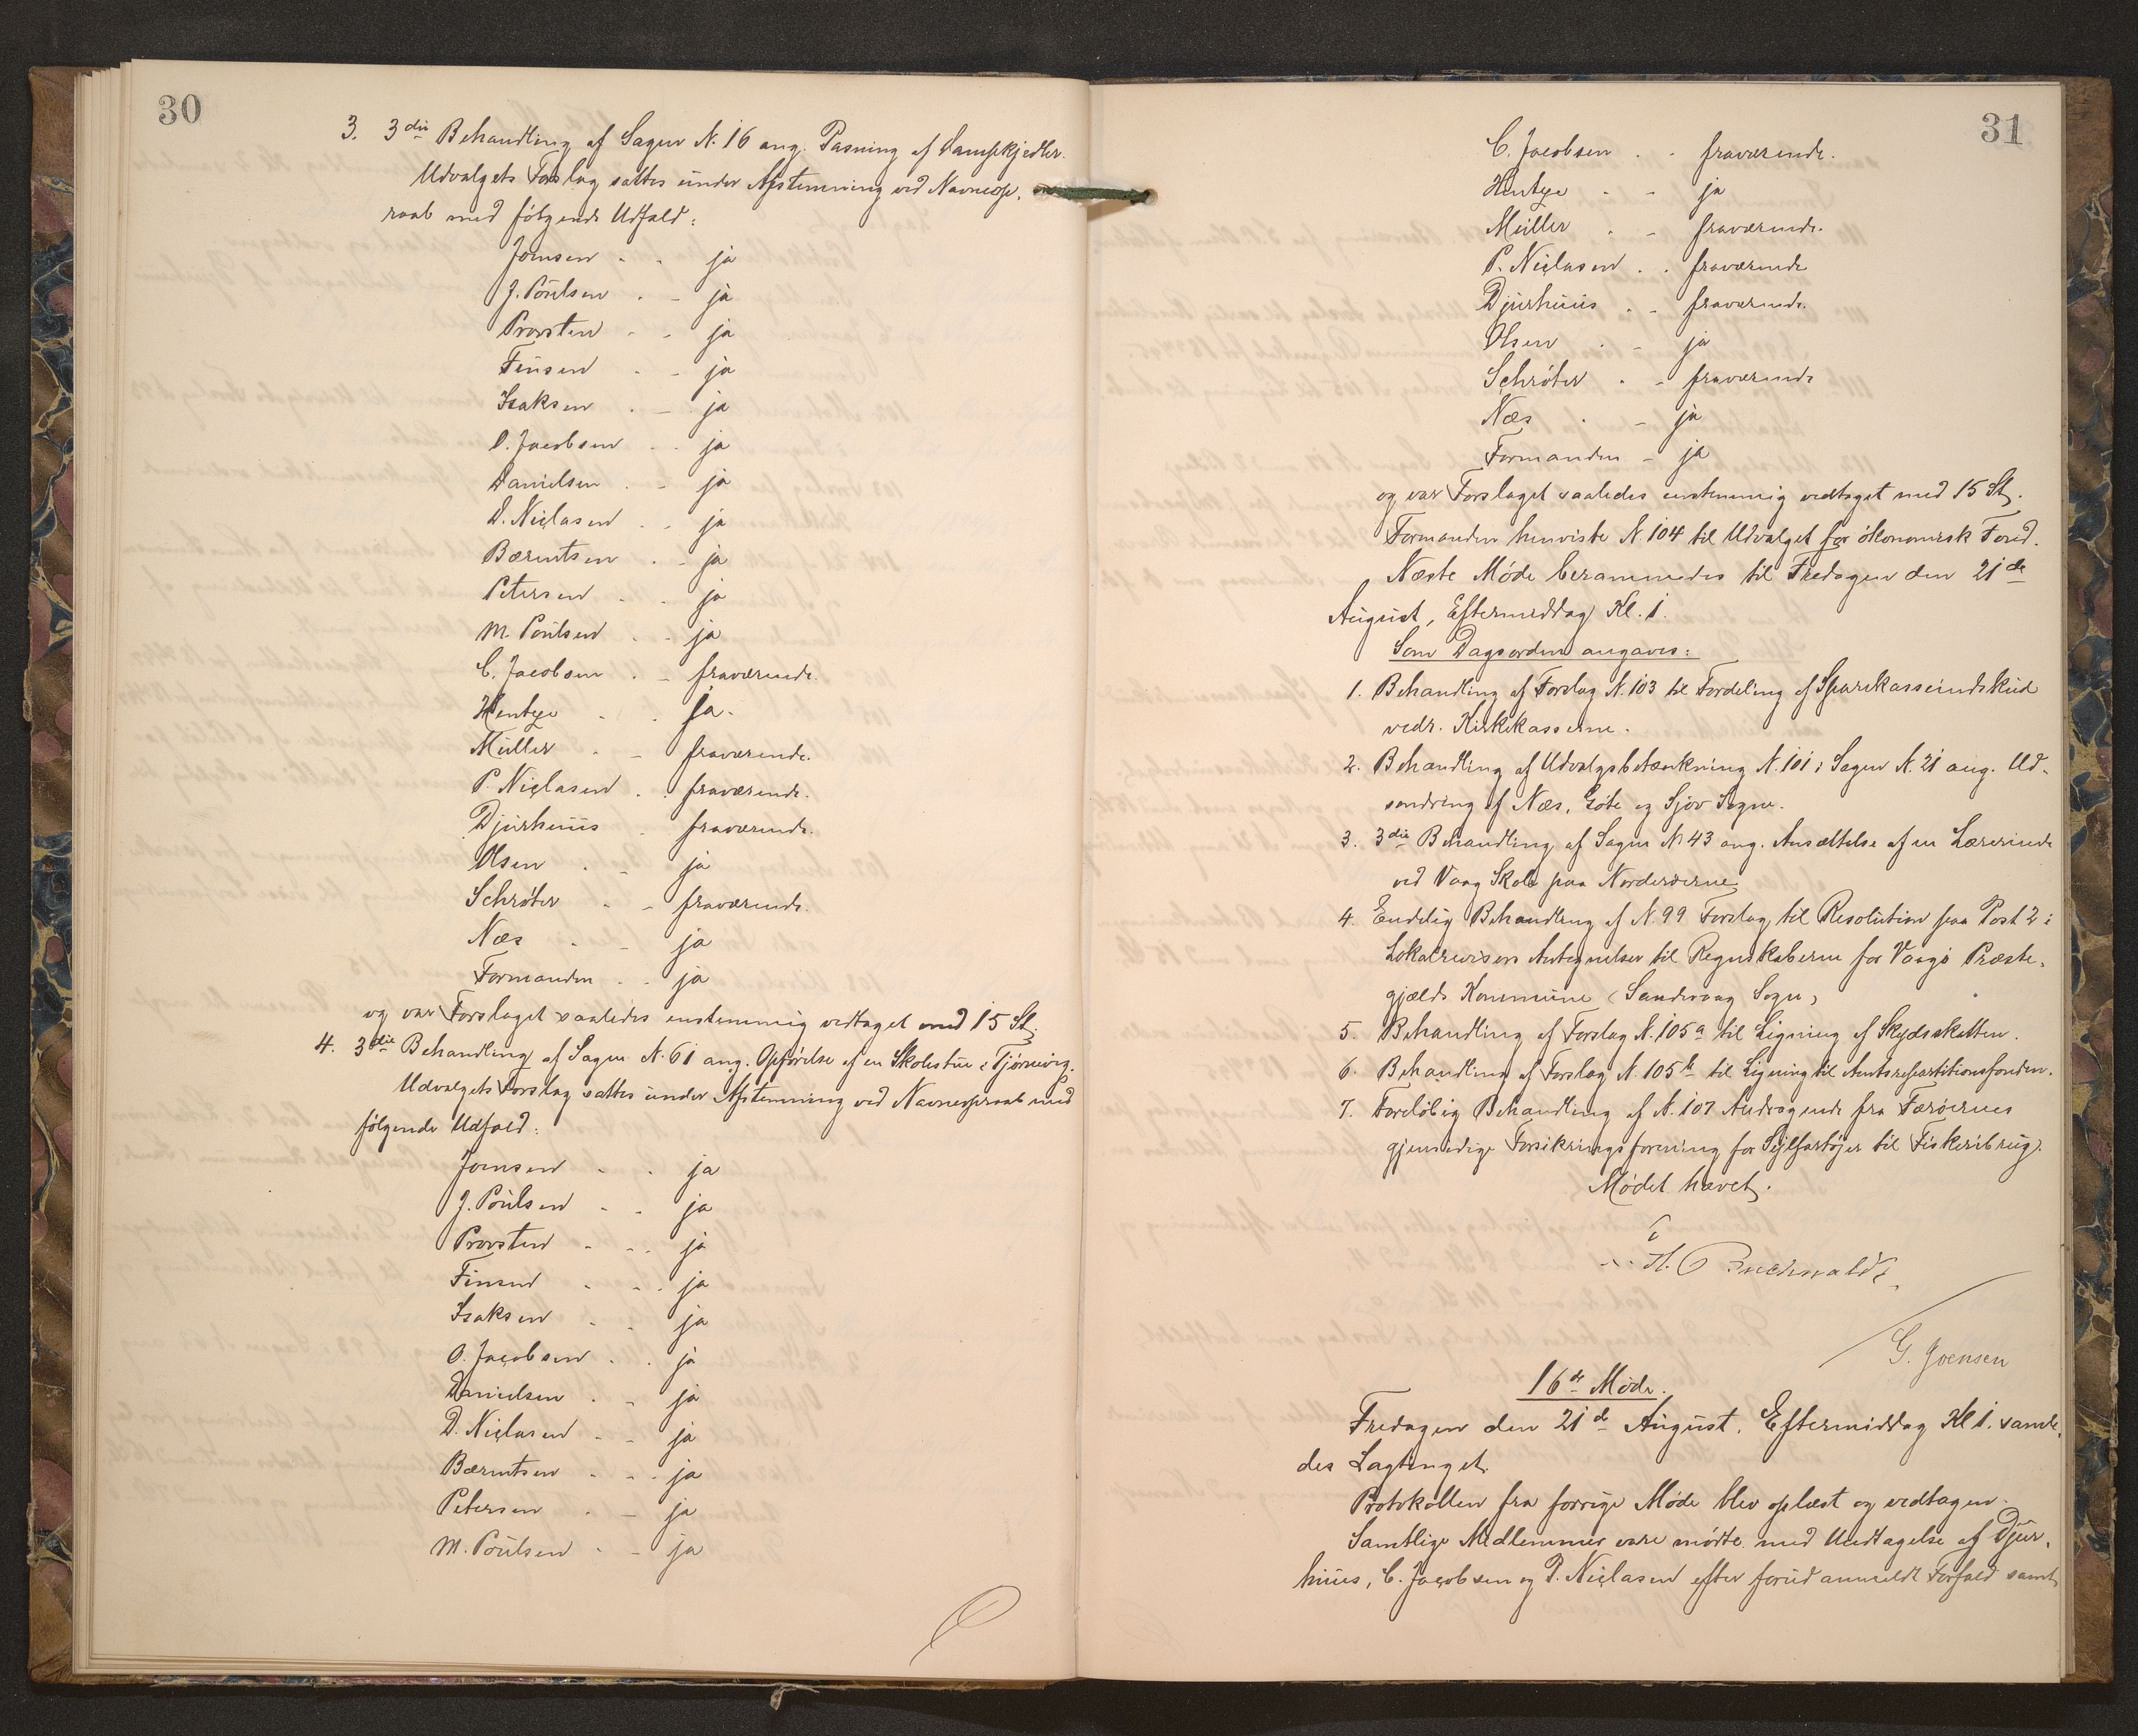 30
3. 3die Behandling af Sagen N. 16 ang. Pasning af Dampkjedler.
Udvalgets Forslag sattes under Afstemning ved Navneop-
raab med følgende Udfald:
Joensen - - ja
J. Poulsen - - ja
Provsten - - ja
Finsen - - ja
Isaksen - - ja
O. Jacobsen - - ja
Danielsen - - ja
D. Niclasen - - ja
Bærentsen - - ja
Petersen - - ja
M. Poulsen - - ja
C. Jacobsen - - fraværende.
Hentze - - ja.
Müller - - fraværende.
P. Niclasen - - fraværende.
Djurhuus - fraværende.
Olsen - - ja
Schrøter - - fraværende.
Næs - - ja
Formanden - - ja
og var Forslaget saaledes enstemmig vedtaget med 15 St.
4. 3die Behandling af Sagen N. 61 ang. Opførelse af en Skolestue i Tjørnevig.
Udvalgets Forslag sattes under Afstemning ved Navneopraab med
følgende Udfald:
Joensen - - ja
J. Poulsen - - ja
Provsten - - ja
Finsen - - ja
Isaksen - - ja
O. Jacobsen - - ja
Danielsen - - ja
D. Niclasen - - ja
Bærentsen - - ja
Petersen - - ja
M. Poulsen - - ja
31
C. Jacobsen - - fraværende.
Hentze - - ja
Müller - - fraværende.
P. Niclasen - - fraværende
Djurhuus - - fraværende.
Olsen - - ja
Schrøter - - fraværende
Næs - - ja
Formanden - ja
og var Forslaget saaledes enstemmig vedtaget med 15 St.
Formanden henviste N. 104 til Udvalget for økonomisk Forud.
Næste Møde berammedes til Fredagen den 21de
August, Eftermiddag Kl. 1.
Som Dagsorden angaves:
1. Behandling af Forslag N. 103 til Fordeling af Sparekasseindskud
vedr. Kirkekasserne.
2. Behandling af Udvalgsbetænkning N. 101 i Sagen N. 21 ang. Ud-
sondring af Næs, Gøte og Sjov Sogne.
3. 3die Behandling af Sagen N 43 ang. Ansættelse af en Lærerinde
ved Vaag Skole paa Norderøerne
4. Endelig Behandling af N. 99 Forslag til Resolution paa Post 2 i
Lokalrevisors Antegnelser til Regnskaberne for Vaagø Præste-
gjælds Kommune (Sandevaag Sogn)
5. Behandling af Forslag N. 105a til Ligning af Skydsskatten.
6. Behandling af Forslag N. 105b til Ligning til Amtsrepartitionsfonden.
7. Foreløbig Behandling af N. 107 Andragende fra Færøernes
gjensidige Forsikringsforening for Sejlfartøjer til Fiskeribrug.
Mødet hævet.
H. Buchwaldt
G. Joensen
16de Møde.
Fredagen den 21de August, Eftermiddag Kl 1. samle-
des Lagtinget.
Protokollen fra forrige Møde blev oplæst og vedtagen.
Samtlige Medlemmer vare mødte med Undtagelse af Djur-
huus, C. Jacobsen og P. Niclasen efter forud anmeldt Forfald samt